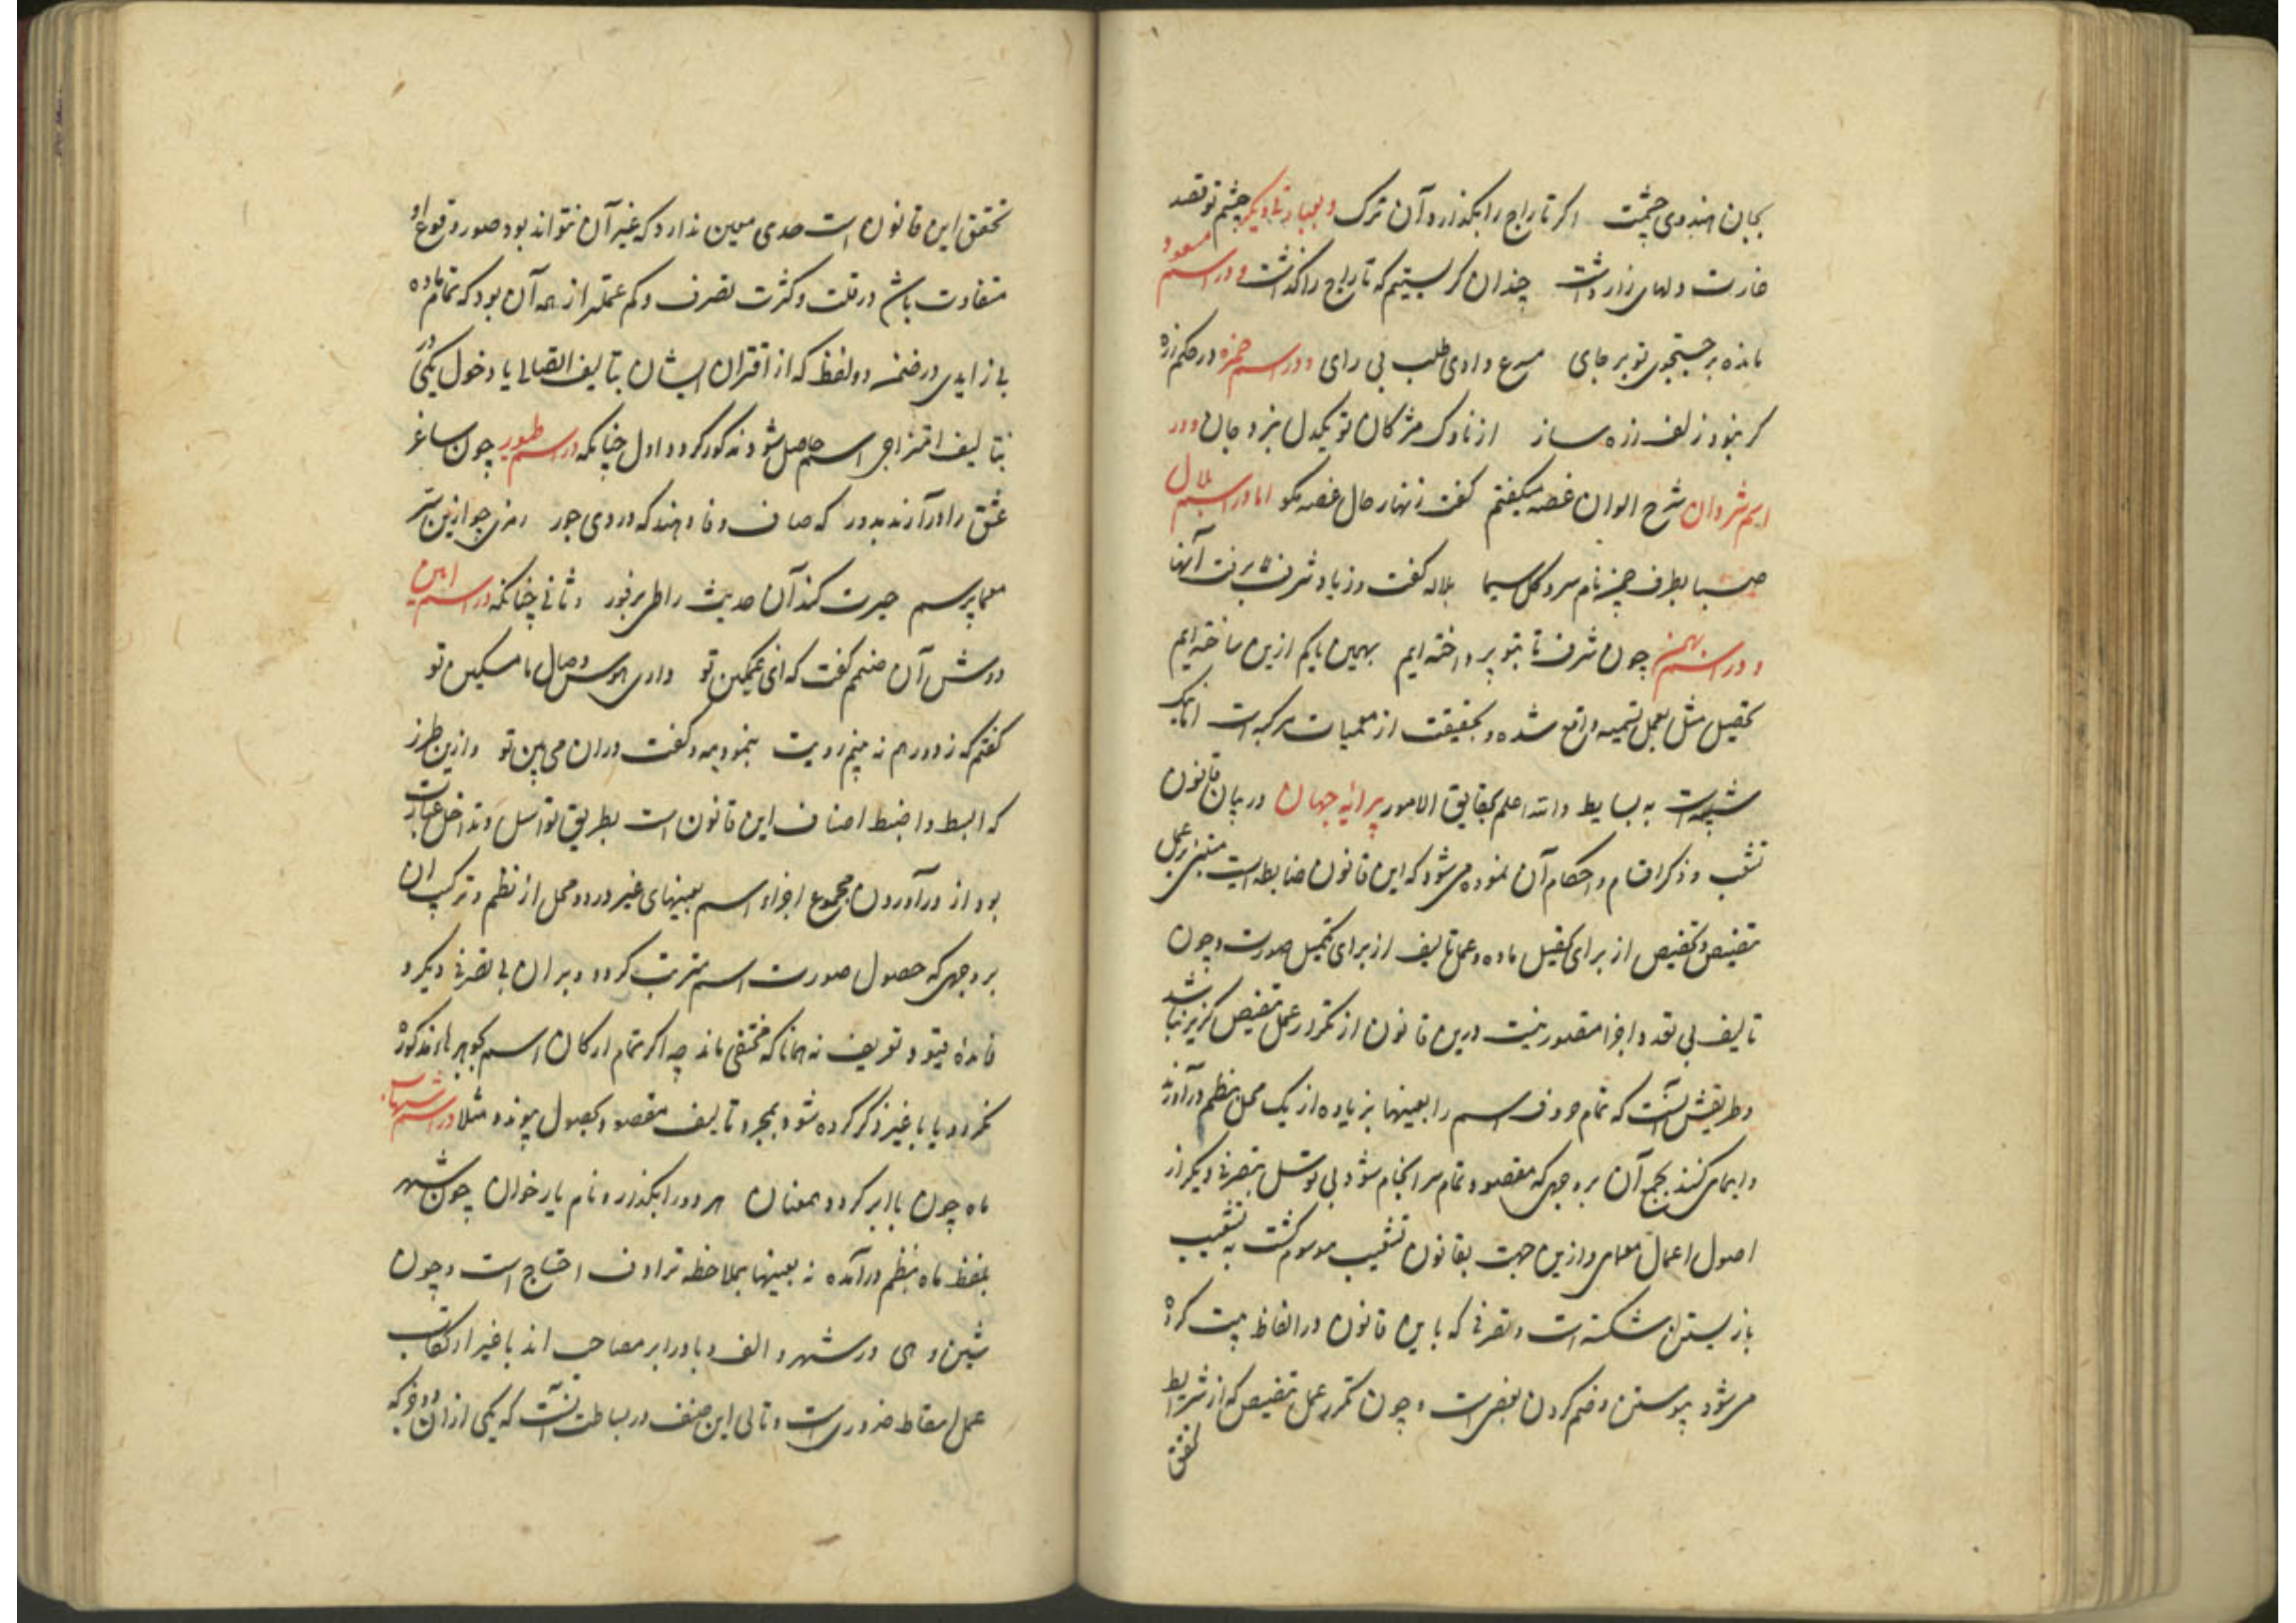 بجان هندوی چشمت اکر تاراج را بکذارد آن ترک و بعبارتی دیکر چشم تو قصد
غارت دلهای زار داشت چندان کریستیم که تاراج را کذاشت و در اسم مسعود
مانده بر جستجوی تو بر جای مسرع وادی طلب بی رای و در اسم حمزه در حکم زره
کر بنود زلف زره ساز از ناوک مژکان تو یکدل نبرد جان و در
اسم شروان شرح الوان غصه میکفتم کفت زنهار حال غصه مکو اما در اسم بلال
صبا بطرف چمن نام سرو کل سیما بلاله کفت و زیاد شرف برفت آنها
و در اسم بهمن چون شرف تا بتو پرداخته ایم بهمین نام از این ساخته ایم
تحصیل مثل بعمل تسمیه واقع شده و بحقیقت از معمیات مرکبه است اما نیک
شبیه است به بسایط والله اعلم بحقایق الامور پیرایه جهان در بیان قانون
تشعب و ذکر اقسام و احکام آن نموده می شود که این قانون ضابطه ایست مبنی بر عمل
تنصیص و تخصیص از برای تحصیل ماده و عمل تالیف از برای تکمیل صورت و چون
تالیف بی تعدد اجزا مقصور نیست درین قانون از تکرار عمل تنصیص کزیر نباشد
و طریقش آنست که تمام حروف اسم را بعینها بزیاده از یک محل بنظم درآورند
و ایمای کنند بجمع آن بر وجهی که مقصود تمام سرانجام شود بی توسل بتصرفی دیکر از
اصول اعمال معمای و ازین جهت بقانون تشعیب موسوم کشت چه تشعیب
باز بستن شکسته است و تصرفی که باین قانون در الفاظ بیت کرده
می شود پیوستن و ضم کردن بعضیست و چون تکرر عمل تنصیص که از شرایط
تحقق
تحقق این قانون است حدی معین ندارد که غیر آن نتواند بود صور وقوع او
متفاوت باشد در قلت و کثرت تصرف و کم عملتر از همه آن بود که تمام ماده
بی زایدی در ضمن دو لفظ که از اقتران ایشان بتالیف اتصالی یا دخول یکی در
بتالیف امتزاجی اسم حاصل شود مذکور کردد اول چنانکه در اسم طیور چون ساغر
عشق را درآرند بدور که صاف وفا دهند که دردی جور رمزی جو ازین ستر
معما پرسم حیرت کند آن حدیث را طی بر فور و ثانی چنانکه در اسم امین
دوش آن صنمم کفت که ای غمکین تو داری هوس وصال ما مسکین تو
کفتم که ز دورم نه بینم رویت بنمود مه و کفت دران می بین تو و ازین طرز
که ابسط و اضبط اصناف این قانون است بطریق توسل و تداخل عبارت
بود از درآوردن مجموع اجزاء اسم بعینهای غیر در دو محل از نظم و ترکیب آن
بر وجهی که حصول صورت اسم مترتب کردد بر آن بی تصرفی دیکر و
فایده قیود تعریف نه همانا که مختفی ماند چه اکر تمام ارکان اسم بجوهرها مذکور
نکردد یا با غیر ذکر کرده شود بمجرد تالیف مقصود بحصول نپیوندد مثلا در اسم شهاب
ماه چون با ابر کردد همعنان هر دو را بکذار و نام یار خوان چون شهر
بلفظ ماه بنظم درآمده نه بعینها بملاحظه ترادف احتیاج است و چون
شین و هی در شهر و الف و با در ابر مصاحب اند با غیر ارتکاب
عمل اسقاط ضروریست و تالی این صنف در بساطت آنست که یکی از ان دو جزو که